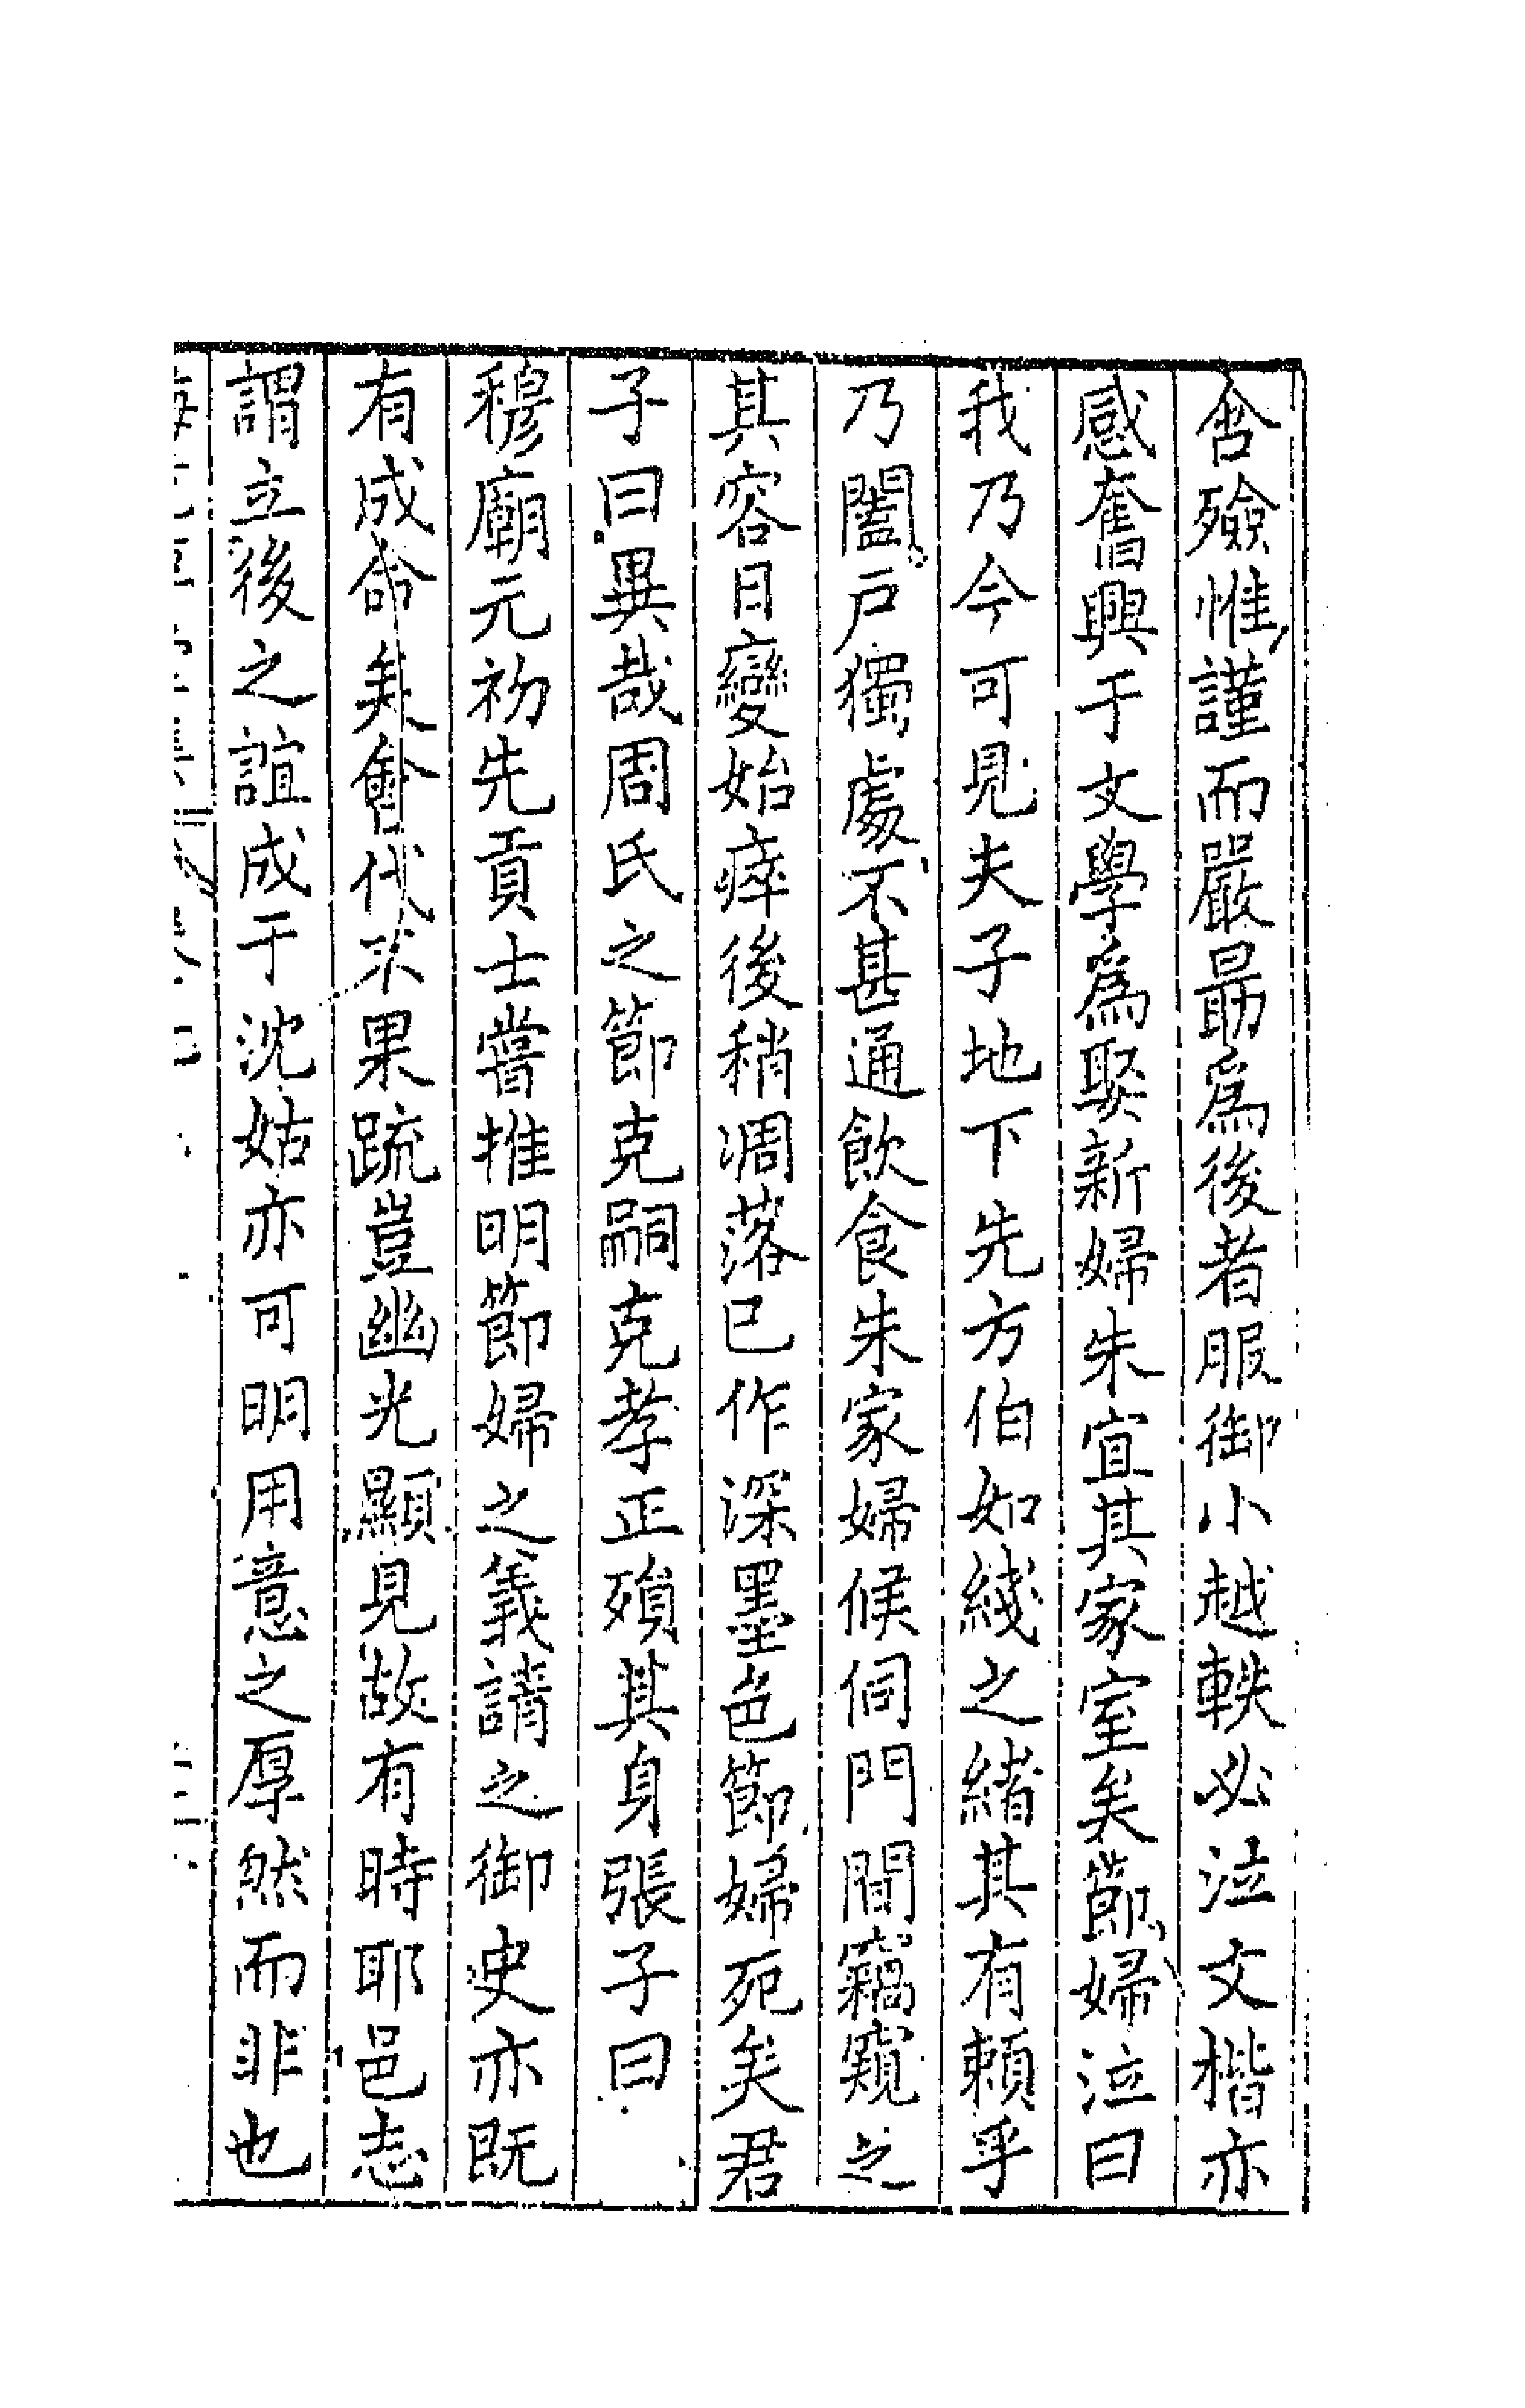 含殮惟謹而嚴最爲後者服御小越軼必泣文楷亦
感奮興于文學爲娶新婦朱宜其家室矣節婦泣曰
我乃今可見夫子地下先方伯如綫之緒其有賴乎
乃闔戸獨處不甚通飲食朱家婦候伺門間竊窺之
其容日變始瘁後稍凋落已作深墨色節婦死矣君
子曰異哉周氏之節克嗣克孝正殞其身張子曰
穆廟元初先貢士嘗推明節婦之義請之御史亦旣
有成命矣會代不果疏豈幽光顯見故有時耶邑志
謂立後之誼成于沈姑亦可明用意之厚然而非也